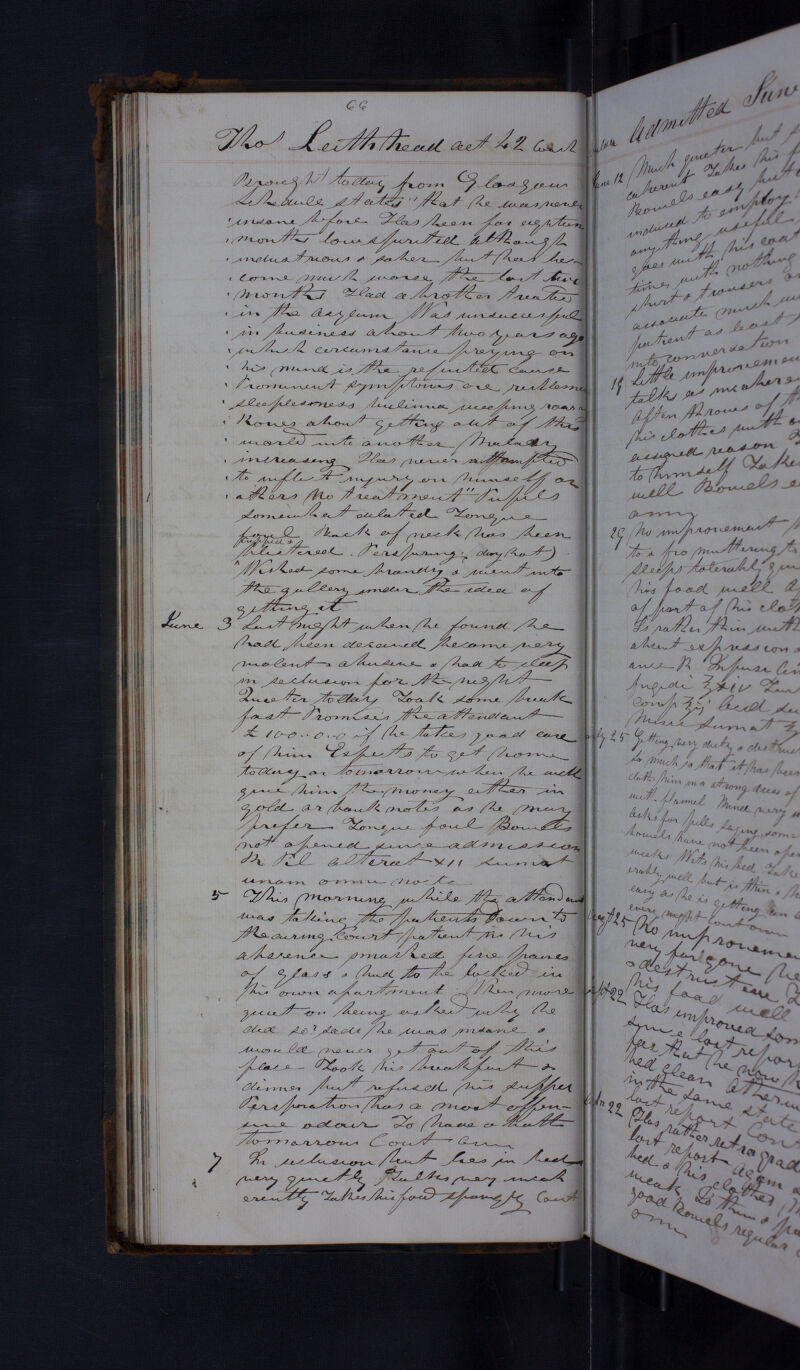 66
Thos Leithhead aet 42
Brought today from Glasgow
Schedule states "that he was never
insane before Has been for eighteen
months low spirited although
industrious & sober but has be-
come much worse the last two
months Had a brother treated
in the asylum Was unsuccessful
in business about two years ago
which circumstance preying on
his mind is the reputed cause
Prominent symptoms are restlessness
sleeplessness weeping
Roves about getting out of this
world into another Malady
increasing Has never attempted
to inflict injury on himself or
others No treatment" Pupils
somewhat dilated Tongue
foul Back of neck has been
cupped &
blistered. Perspiring, day hot)
Wished some brandy & went into
the gallery under the idea of
getting it
June 3 Last night when he found he
had been deceived became very
violent & abusive & had to sleep
in seclusion for the night
Quieter today Took some break
fast Promises the attendant
£100.0.0 if he takes good care
of him Expects to get home
today or tomorrow when he will
give him the money either in
gold or bank notes as he may
prefer Tongue foul Bowels
not opened since admission
R Pil alterat XII sumat
unam omni nocte
5 This morning while the attendant
was taking the patients down to
the airing Court patient in his
absence smashed five panes
of glass & had to be locked in
his own apartment When more
quiet on being asked why he
did so? said he was insane &
would never get out of this
place Took his breakfast &
dinner but refused his supper
Perspiration has a most offen-
sive odour To have a bath
tomorrow Cont
7 In seclusion but lies in bed
very quietly Talks very incoh
erently Takes his food sparingly Cont
Admitted June
June 12 Much quieter but
coherent Takes his
Bowels easy but
induced to employ
any thing useful
goes with his coat
times with nothing
shirt & trousers
associate much
patient at least
into conversation
19 Little improvement
talks as incoherent
often throws off
his clothes with
assigned reason
to himself Takes
well Bowels
29 No improvement
to & fro muttering to
sleeps tolerably
his food well
of part of his clothes
Is rather thin with
expression
R Infusi
comp
sumat
July 25 Getting very dirty & destructive
so much so that it has been
cloth him in a strong dress of
with flannel Mind very
Asks for pills saying some
bowels have not been open
weeks Wets his bed Takes
well but is thin &
easy as he is getting
every night Cont omn
Augt 25 No improvement
very
& destructive
his food well
Sept 22 Has improved some
since last report
far that he now
bed clean Otherwise
in the same state
last report Cont
22 Has rather retrograded
last report Again
bed & his clothes
weak Is thin &
good Bowels regular
omn